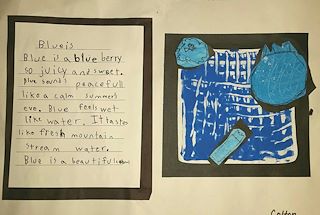 Blue is
Blue is a blue berry
so juicy and sweet.
Blue sounds peacefull
like a calm summers
eve. Blue feels wet
like water. It taste
like fresh mountain
stream water.
Blue is a beautiful
Colton